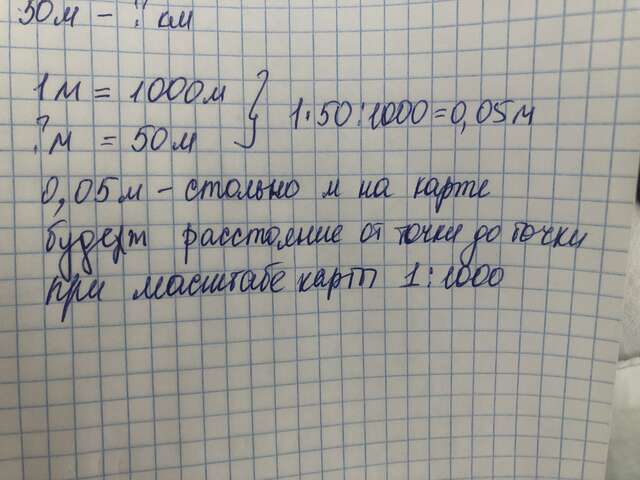 50м - ? км
1м = 1000м
?м = 50м
1·50:1000=0,05м
0,05м - столько м на карте
будет расстояние от точки до точки
при масштабе карты 1:1000